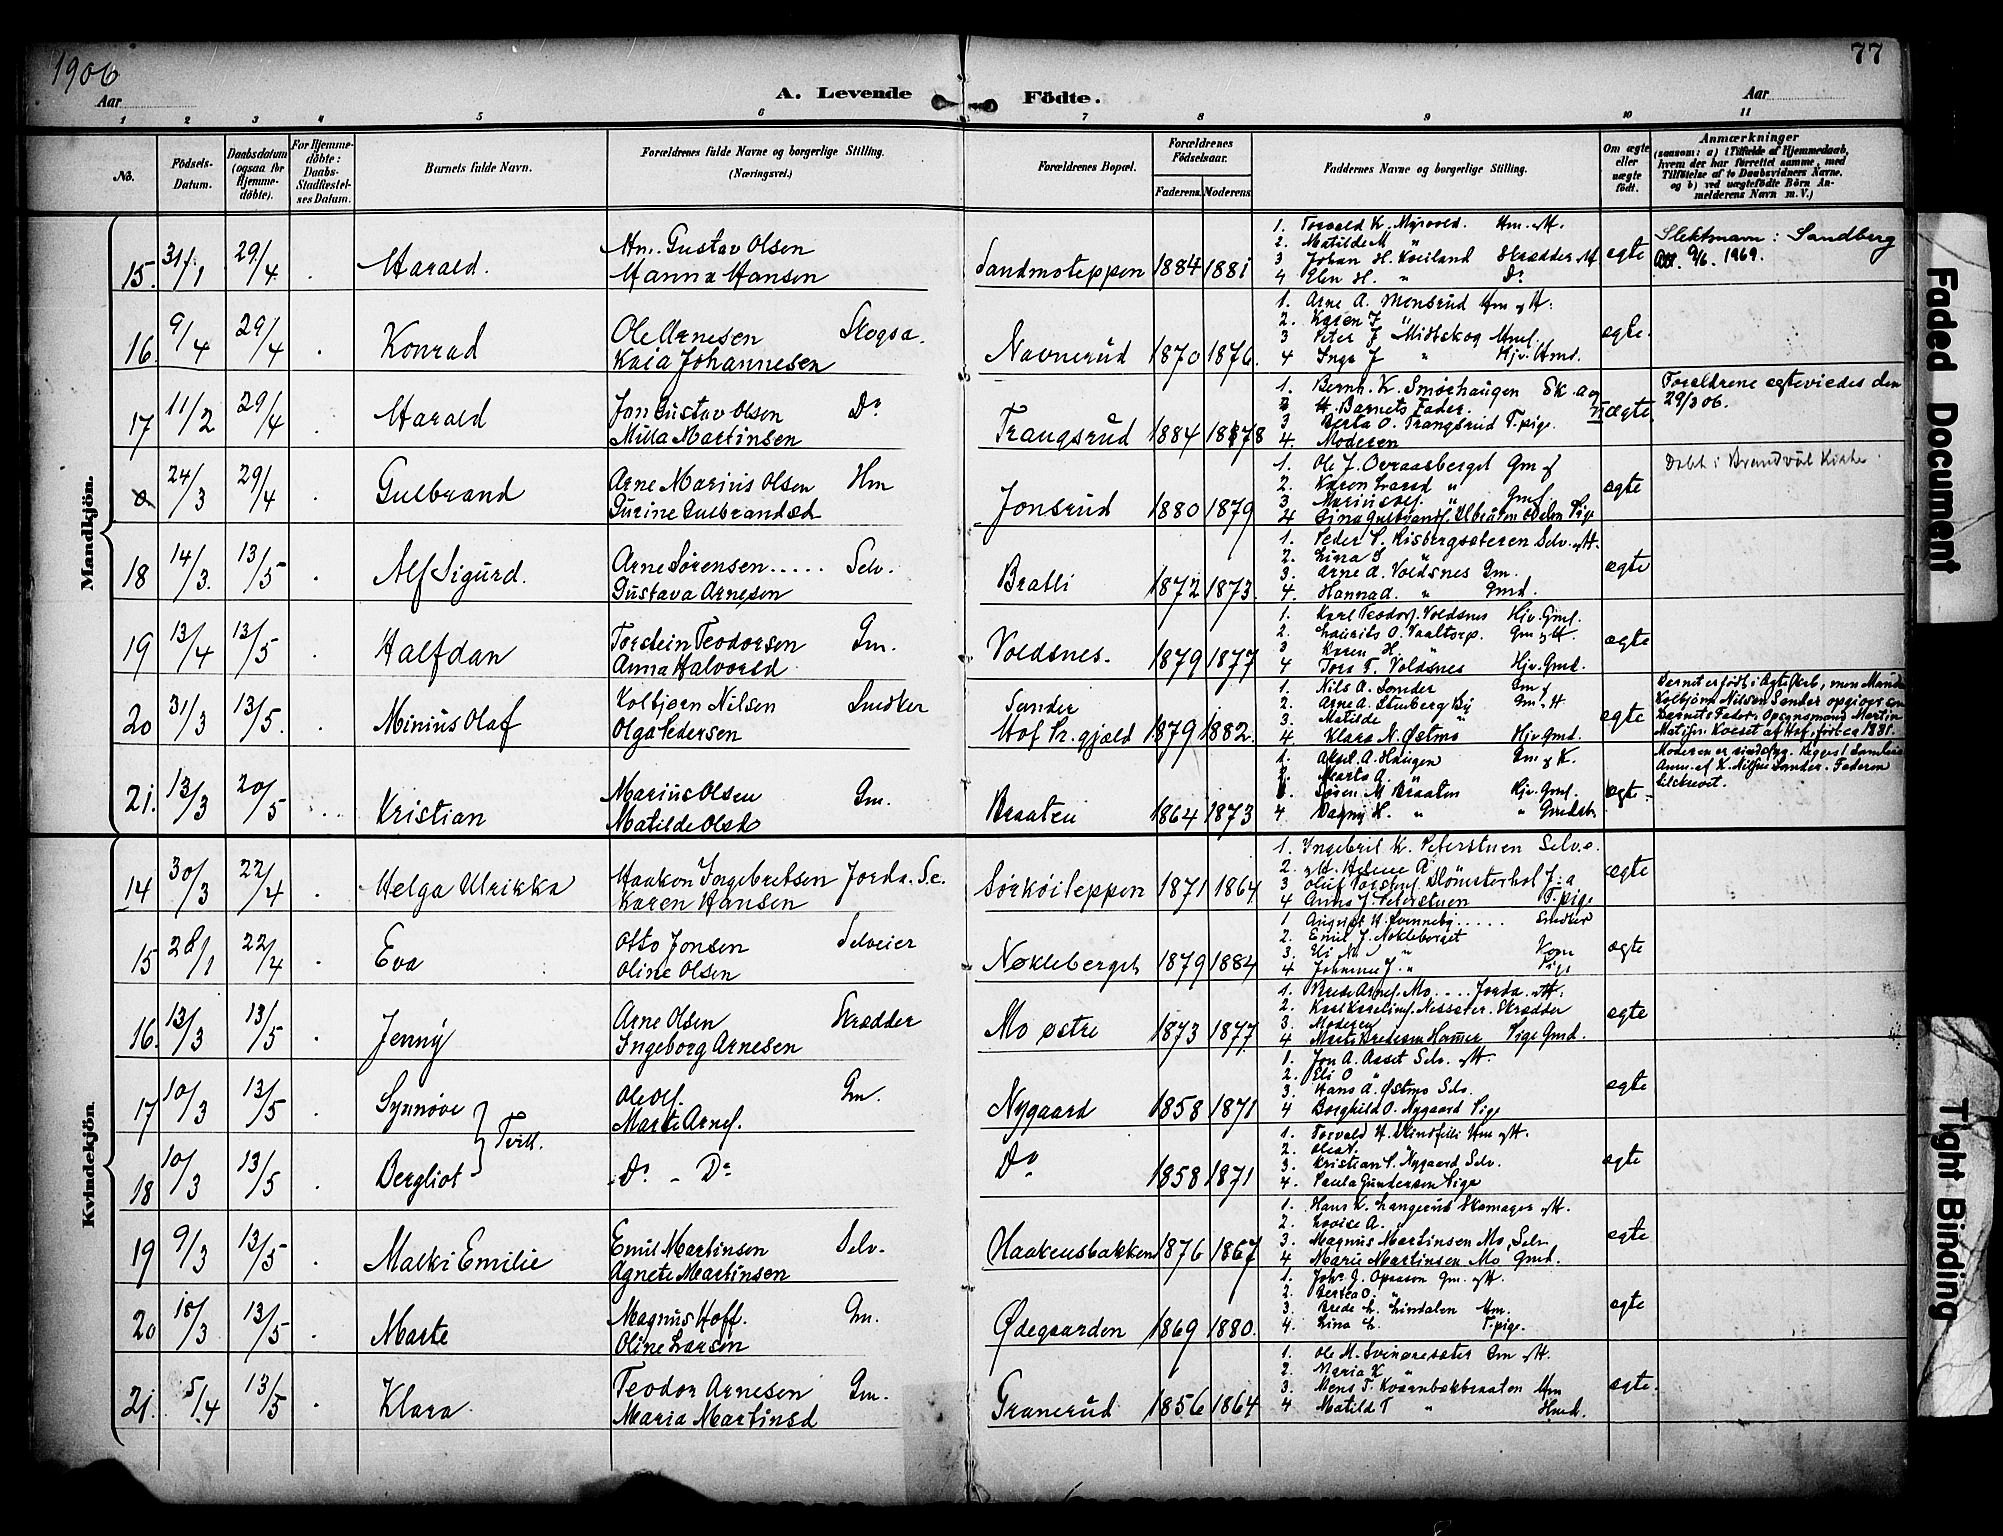 1906
77
Aar
A. Levende Födte.
Aar
1 2 3 4 5 6 7 8 9 10 11
No.
Födsels-Datum.
Daabsdatum (ogsaa for Hjemme-döbte).
For Hjemme-döbte: Daabs-Stadfæstel-ses Datum.
Barnets fulde Navn.
Forældrenes fulde Navne og borgerlige Stilling. (Næringsvei.)
Forældrenes Bopæl.
Forældrenes Födselsaar.
Faderens. Moderens.
Faddernes Navne og borgerlige Stilling.
Om ægte eller uægte födt.
Anmærkninger
(saasom: a) i Tilfælde af Hjemmedaab, hvem der har forrettet samme, med Tilföielse af to Daabsvidners Navne, og b) ved uægtefödte Börn An-melderens Navn m. V.)
Mandkjön.
15. 31/1 29/4 Harald. Hm. Gustav Olsen
Hanna Hansen
Sandmoteppen 1884 1881
1. Torvald K. Myrvold. Hm. og H.
2. Matilde M "
3 Johan H. Kveiland Skrædder og H
4 Elen H. " Do
ægte
Slektsnavn: Sandberg
9/6. 1969.
16. 9/4 29/4 Konrad Ole Arnesen Skogsa.
Kaia Johannesen
Navnerud 1870 1876.
1. Arne A. Monsrud Hm og H.
2. Karen J "
3 Peter J Midtskog Hmf.
4 Inga J " Hjv. Hmd.
ægte.
17 11/2 29/4 Harald Jon Gustav Olsen Do
Milla Martinsen
Trangsrud 1884 1878
1. Bernh. K. Smørhaugen Sk. a og
2 H. Barnets Fader.
3 Berta O. Trangsrud T. pige.
4. Moderen
uægte
Forældrene ægteviedes den
29/3 06.
0 24/3 29/4 Gulbrand Arne Marius Olsen Hm
Gurine Gulbrandsd
Jonsrud 1880 1879
1. Ole J. Overaasberget Gm og
2. Karen Larsd "
3 Marius Olsf. " Gmf.
4 Gina Gulbrandsf. Ulbraaten Pige
ægte
Døbt i Brandval Kirke.
18 14/3. 13/5 Alf Sigurd. Arne Sørensen..... Selv.
Gustava Arnesen
Bratli 1872 1873
1. Peder P. Risbergsæteren Selv. og H.
2. Lina S "
3. Arne A. Voldsnes Gm.
4. Hanna A. " Gmd.
ægte
19 13/4 13/5 Halfdan Torstein Teodorsen Gm.
Anna Halvorsd
Voldsnes. 1879 1877
1. Karl Teodorf. Voldsnes Hjv. Gmf.
2. Laurits O. Vaaltorp. Gm og H.
3 Karen H. "
4 Tora T. Voldsnes Hjv. Gmd.
ægte
20 31/3 13/5. Minius Olaf Kolbjørn Nilsen Snedker
Olga Pedersen
Sander
Hof Pr. gjæld 1879 1882.
1. Nils A. Sander Gm og
2. Arne A. Stuberg By Gm. H
3. Matilde "
4. Klara N. Østmo Hjv. Gmd.
ægte
Barnet er født i Ægteskab, men Manden
Kolbjørn Nilsen Sander opgives som
Barnets Fader. Opgivnsmand Martin
Matisf. Kveset af Hof, født ca 1881.
21. 13/3 20/5 Kristian Marius Olsen Gm.
Matilde Olsd
Braaten 1864 1873
1. Aksel A. Haugen Gm og K.
2. Marta A. "
3. Søren M Braaten Hjv. Gmf.
4 Dagny H. " " Gmdatr.
ægte.
Kvindekjön.
14 30/3 22/4 Helga Ulrikka Haakon Ingebretsen Jorda. Se.
Karen Hansen
Sørkøiteppen 1871 1864
1. Ingebril K. Peterstuen Selv. e.
2. og H. Helene A "
3 Oluf Torstenf. Blomsterhol J: a
4 Anna J. Peterstuen T. pige
ægte
15 28/1 22/4 Eva Otto Jonsen Selveier
Oline Olsen
Nøkleberget 1879 1884
1 August H. Svenneby..... Snedker
2. Emil J. Nøkleberget
3. Eli N. " Kone
4 Johanne J. " Pige
ægte
16. 13/3 13/5 Jenny Arne Olsen Skrædder
Ingeborg Arnesen
Mo østre 1873 1877
1. Brede Arnef. Mo.... Jorda. og H.
2. Karl Karelinsf. Nessæter. Skrædder
3. Moderen
4. Marte Bredesen Hammer Pige Gmd.
ægte
17 10/3 13/5 Synnøve } Tvill. Ole Olsf. Gm.
Marte Arnef.
Nygaard 1858 1871
1. Jon A. Aaset Selv. og H.
2. Eli O "
3. Hans A. Østmo Selv.
4 Borghild O. Nygaard Pige
ægte
18 10/3 13/5 Bergliot Do - Do
Do 1858 1871
1. Torvald H. Skindfelli Hm og H.
2. Olea N. "
3. Kristian P. Nygaard Selv.
4. Paula Gundersen Pige
ægte
19 9/3 13/5 Malki Emilie Emil Martinsen Selv.
Agnete Martinsen
Haakensbakken 1876 1867
1. Hans K. Langerud Skomager og H.
2. Lovise A. "
3. Magnus Martinsen Mo, Selv.
4 Marie Martinsen Mo Gmd.
ægte
20 18/3 13/5 Marte Magnus Hoff. Gm.
Oline Larsen
Ødegaarden 1869 1880.
1. Johs J. Opaasen Gm. og H.
2. Bertea O. "
3. Brede L. Lindalen Hm.
4. Lina L. T. pige.
ægte
21. 5/4 13/5 Klara Teodor Arnesen Gm.
Maria Martinsd
Granerud 1856 1864
1. Ole M. Svingesæter Gm og H.
2. Maria K "
3. Mons T. Kvarnbækbraaten Hm
4 Matild T " Hmd.
ægte.
Faded Document
Tight Binding